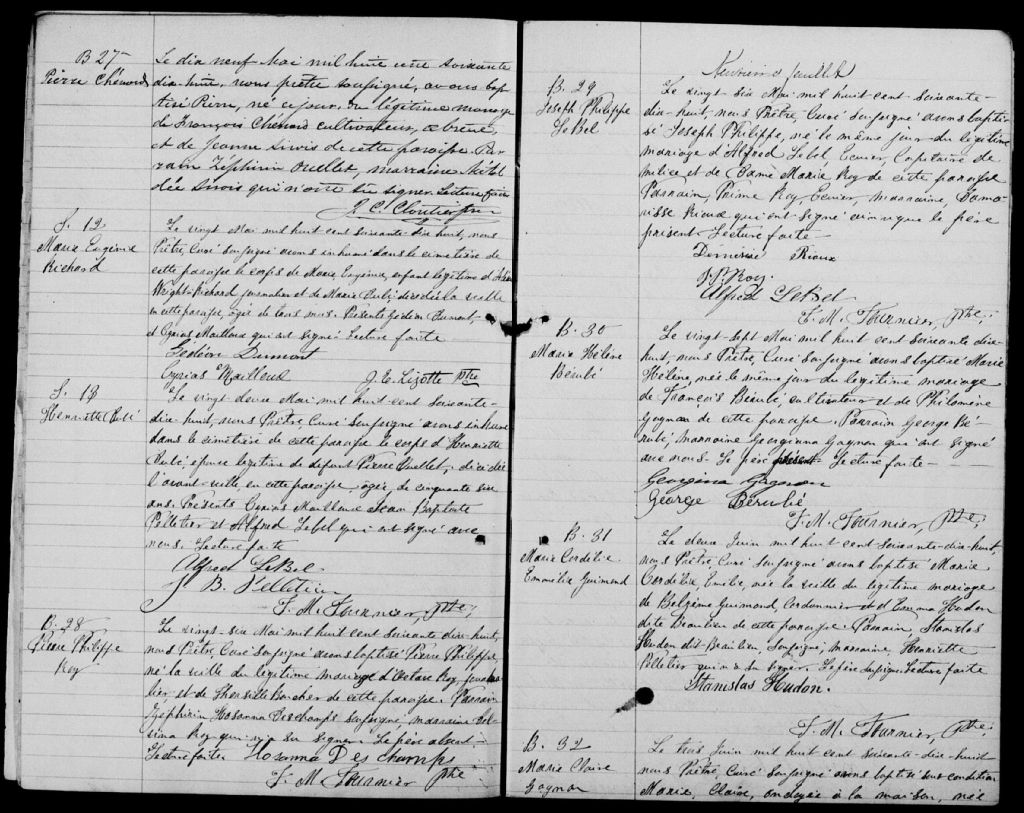 B 27
Pierre Chénard
Le dix neuf Mai mil huit cent soixante
dix-huit, nous prêtre soussigné, avons bap-
tisé Pierre, né ce jour, du légitime mariage
de François Chénard cultivateur,
et de Jeanne Sirois de cette paroisse. Par-
rain Zéphirin Ouellet, marraine
Sirois qui n'ont su signer. Lecture faite
J. C. Cloutier ptre
S. 12
Marie Eugénie
Richard
Le vingt Mai mil huit cent soixante dix huit, nous
Prêtre, Curé soussigné avons inhumé dans le cimetière de
cette paroisse le corps de Marie Eugénie, enfant légitime d'
Wright-Richard journalier et de Marie Dubé décédée la veille
en cette paroisse, agée de trois mois. Présents Gédéon Dumont,
et Cyrias Mailloux qui ont signé. Lecture faite
Gédéon Dumont
Cyrias Mailloux J. E. Lizotte Ptre
S. 13
Henriette Dubé
Le vingt deux Mai mil huit-cent soixante-
dix-huit, nous Prêtre Curé soussigné avons inhumé
dans le cimetière de cette paroisse le corps d'Henriette
Dubé, épouse légitime de défunt Pierre Ouellet, décédée
l'avant-veille en cette paroisse agée de cinquante six
ans. Présents Cyrias Mailloux Jean Baptiste
Pelletier et Alfred Lebel qui ont signé avec
nous. Lecture faite
Alfred LeBel
J. B. Pelletier
F. M. Fournier, Ptre,
B. 28
Pierre Philippe
Roy
Le vingt-six Mai mil huit cent soixante dix-huit,
nous Prêtre Curé soussigné avons baptisé Pierre Philippe
né la veille du légitime mariage d'Octave Roy, journa-
lier et de Thersille Boucher de cette paroisse. Parrain
Zéphirin Hosanna Deschamps soussigné, marraine
Roy qui n'a su signer. Le père absent.
Lecture faite Hosanna Des champs
F. M. Fournier Ptre
Neuvième feuillet
B. 29
Joseph Philippe
LeBel
Le vingt-six Mai mil huit-cent soixante-
dix-huit, nous Prêtre, Curé soussigné avons bapti-
sé Joseph Philippe, né le même jour du légitime
mariage d'Alfred Lebel Ecuier, Capitaine de
milice et de Dame Marie Roy de cette paroisse
Parrain, Prime Roy, Ecuier, marraine, Dame
Rioux qui ont signé ainsi que le père
présent Lecture faite
Rioux
J. P. Roy
Alfred LeBel
F. M. Fournier, Ptre,
B. 30
Marie Hélène
Bérubé
Le vingt-sept Mai mil huit cent soixante dix-
huit, nous Prêtre, Curé soussigné avons baptisé Marie
Hélène, née le même jour du légitime mariage
de François Bérubé, cultivateur et de Philomène
Gagnon de cette paroisse. Parrain George Bé-
rubé, marraine Georgianna Gagnon qui ont signé
avec nous. Le père présent Lecture faite
Georgina Gagnon
George Bérubé
F. M. Fournier, Ptre,
B. 31
Marie Cordélie
Emmélie Guimond
Le deux Juin mil huit cent soixante-dix-huit,
nous Prêtre, Curé soussigné avons baptisé Marie
Cordélie Emélie, née la veille du légitime mariage
de Belzéme Guimond, Cordonnier et d'Emma Hudon
dite Beaulieu de cette paroisse. Parrain, Stanislas
Hudon dit-Beaulieu soussigné, marraine Henriette
Pelletier qui n'a su signer. Le père Lecture faite
Stanislas Hudon.
F. M. Fournier, Ptre,
B. 32
Marie Claire
Gagnon
Le trois Juin mil huit cent soixante-dix-huit
nous Prêtre, Curé soussigné avons baptisé sous condition
Marie, Claire, ondoyée à la maison, née